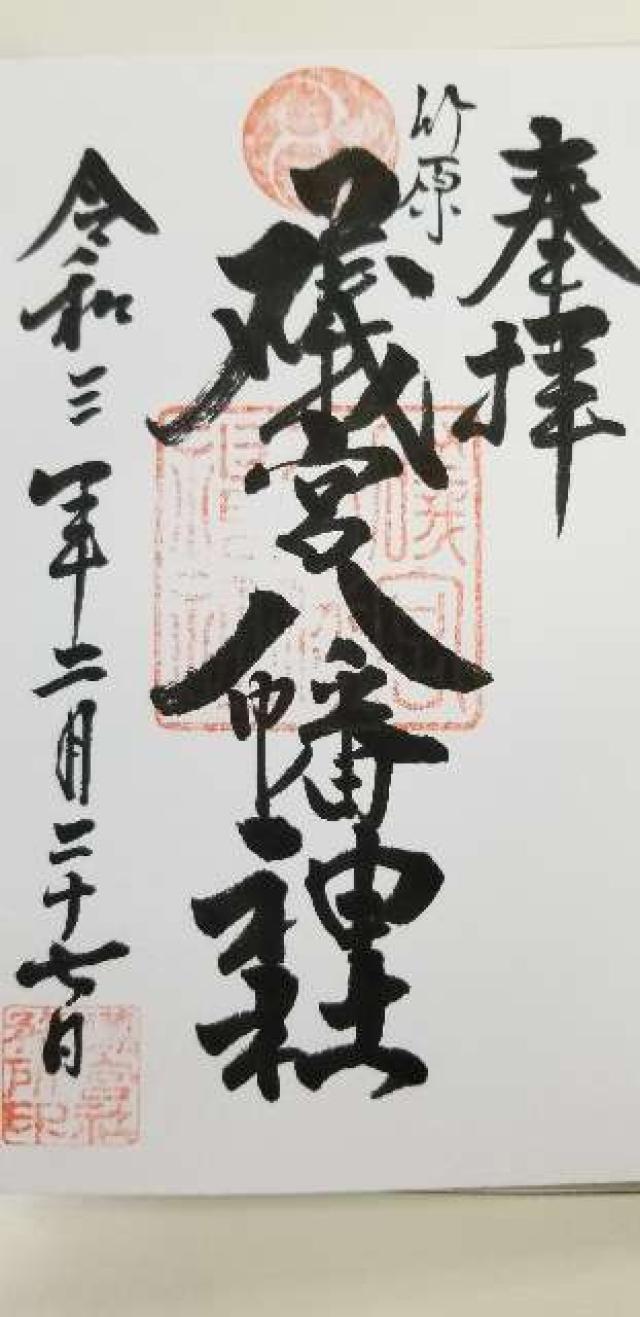 奉拝
竹原
礒宮八幡神社
令和三年二月二十七日